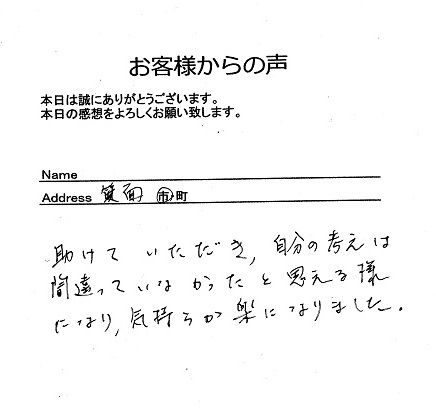 お客様からの声
本日は誠にありがとうございます。
本日の感想をよろしくお願い致します。
Name
Address 箕面 市・町
助けていただき、自分の考えは
間違っていなかったと思える様
になり、気持ちが楽になりました。